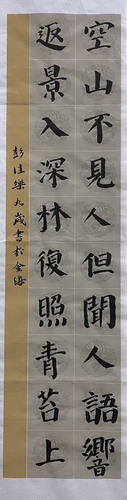 空山不見人但聞人語響
返景入深林復照青苔上
彭佳樂九歲書於金海